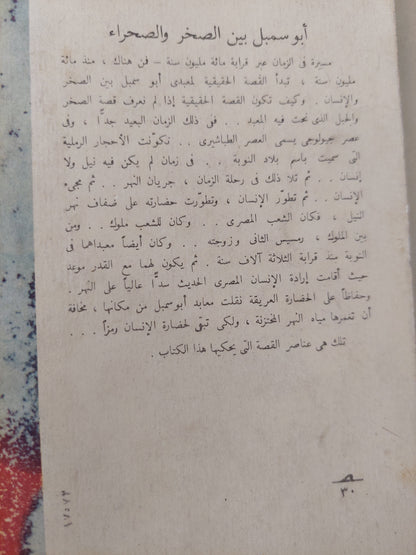 أبو سمبل بين الصخر والصحراء
مسيرة فى الزمان عبر قرابة مائة مليون سنة – فن هناك ، منذ مائة
مليون سنة ، تبدأ القصة الحقيقية لمعبدى أبو سمبل بين الصخر
والإنسان . وكيف تكون القصة الحقيقية إذا لم نعرف قصة الصخر
والجبل الذى نحت فيه المعبد . . ففى ذلك الزمان البعيد جدًّا ، وفى
عصر جيولوجى يسمى العصر الطباشيرى . . تكوّنت الأحجار الرملية
التى سميت باسم بلاد النوبة . . فى زمان لم يكن فيه نيل ولا
إنسان . . ثم تلا ذلك فى رحلة الزمان ، جريان النهر . . ثم مجىء
الإنسان . . ثم تطوّر الإنسان ، وتطوّرت حضارته على ضفاف نهر
النيل ، فكان الشعب المصرى . . وكان للشعب ملوك . . ومن
بين الملوك ، رمسيس الثانى وزوجته . . وكان أيضاً معبداهما فى
النوبة منذ قرابة الثلاثة آلاف سنة . ثم يكون لهما مع القدر موعد
حيث أقامت إرادة الإنسان المصرى الحديث سدًّا عالياً على النهر .
وحفاظاً على الحضارة العريقة نقلت معابد أبو سمبل من مكانها ، مخافة
أن تغمرها مياه النهر المختزنة ، ولكى تبقى لحضارة الإنسان رمزاً . . .
تلك هى عناصر القصة التى يحكيها هذا الكتاب .
٣٠